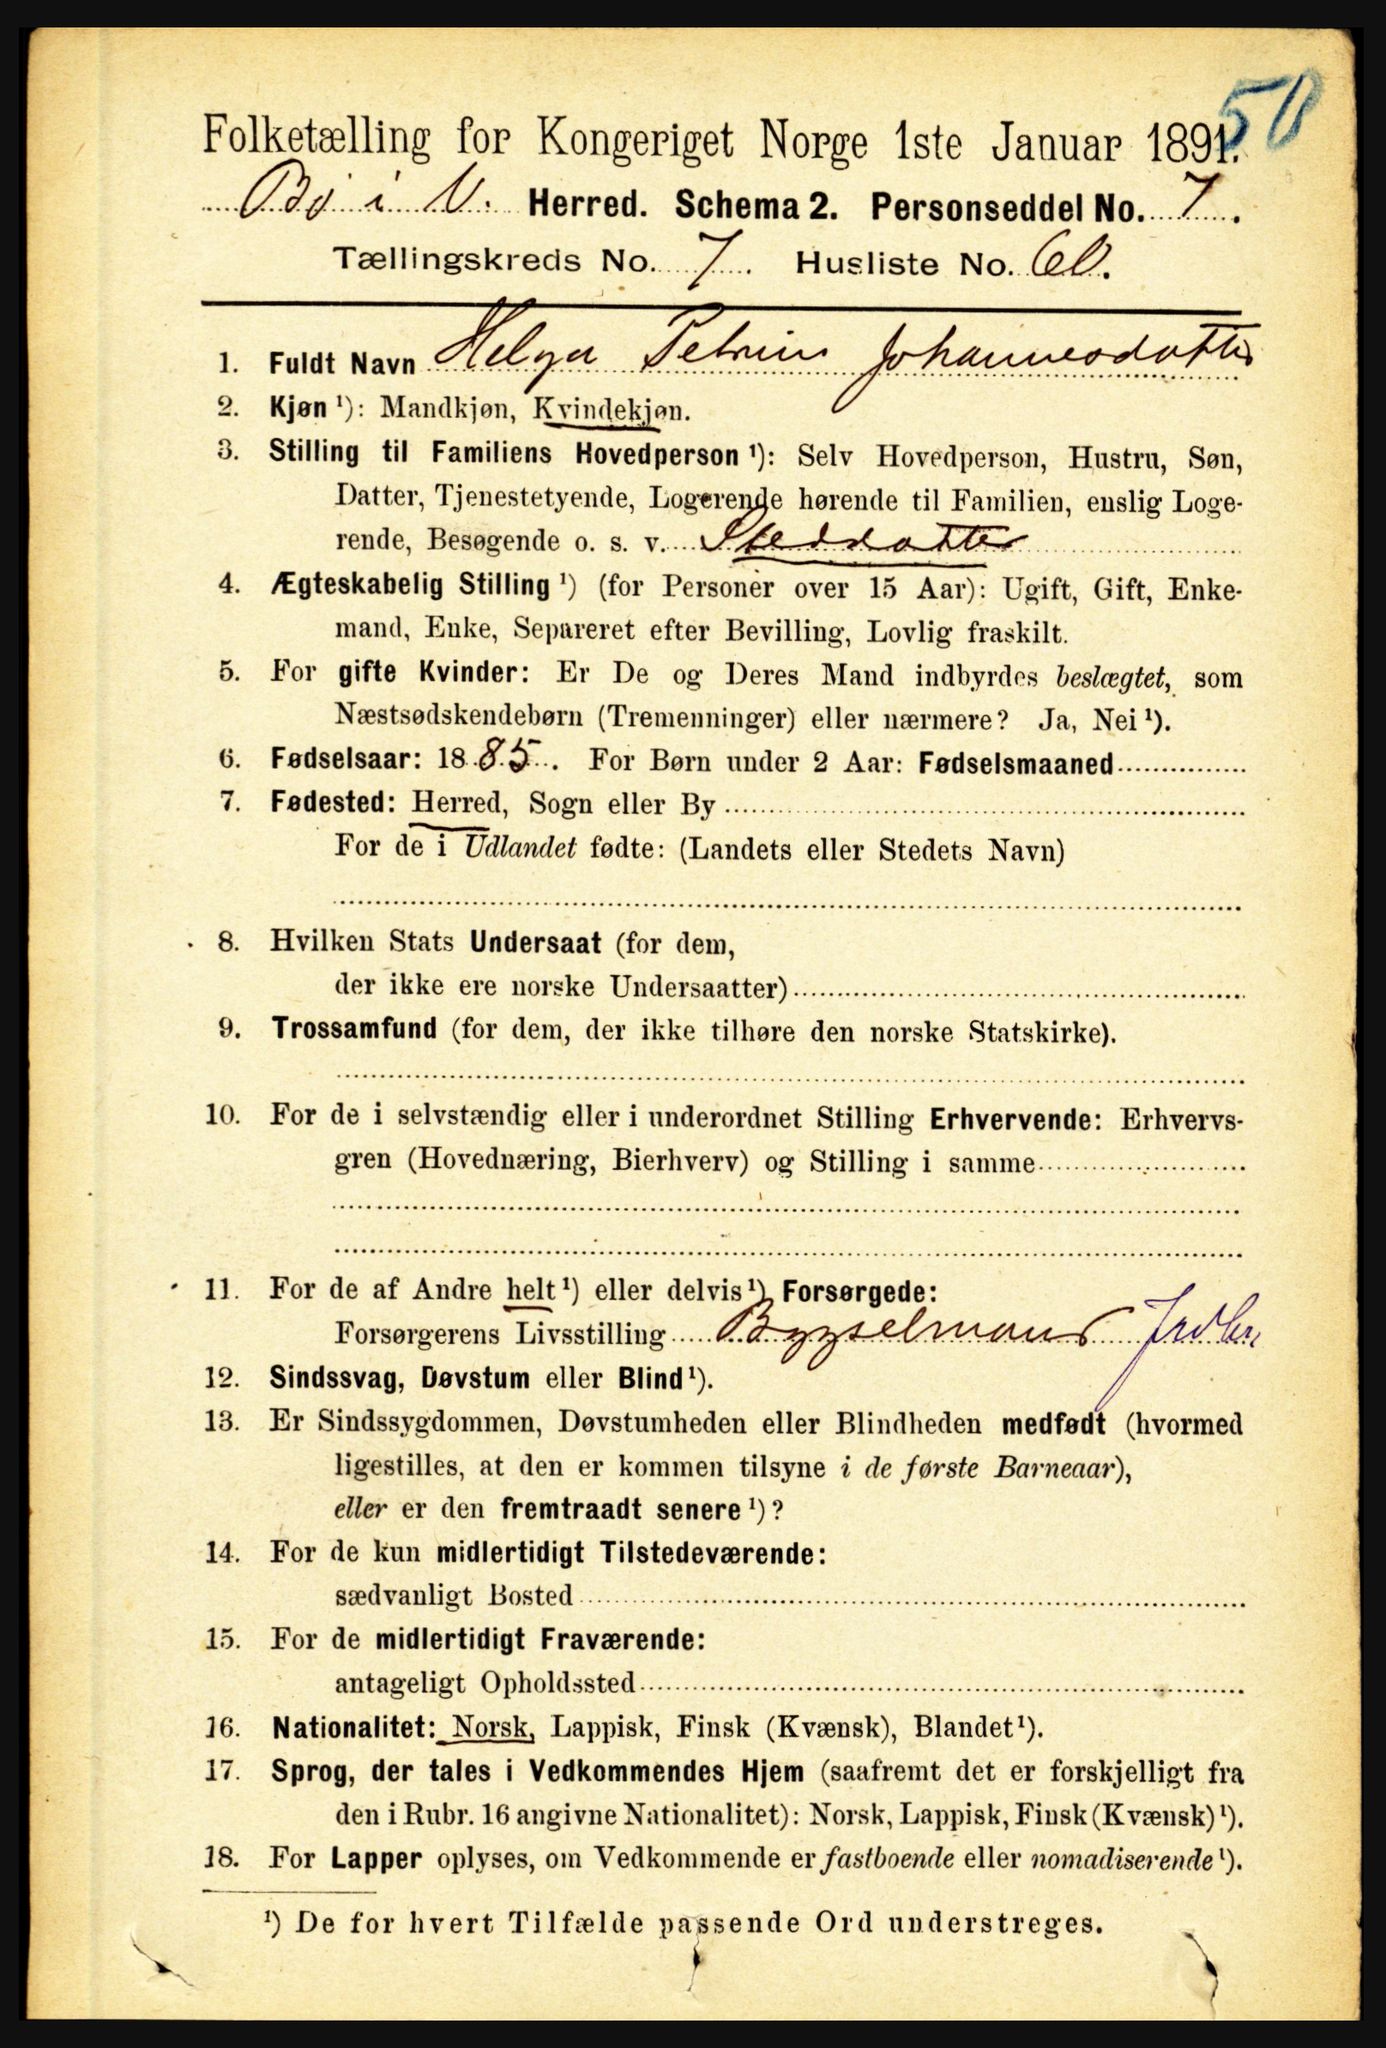 50
Folketælling for Kongeriget Norge 1ste Januar 1891.
Bø i V. Herred. Schema 2. Personseddel No. 7.
Tællingskreds No. 7. Husliste No. 60.
1. Fuldt Navn Helga Petrine Johannesdatter
2. Kjøn ¹): Mandkjøn, Kvindekjøn.
3. Stilling til Familiens Hovedperson ¹): Selv Hovedperson, Hustru, Søn,
Datter, Tjenestetyende, Logerende hørende til Familien, enslig Loge-
rende, Besøgende o. s. v. Steddatter
4. Ægteskabelig Stilling ¹) (for Personer over 15 Aar): Ugift, Gift, Enke-
mand, Enke, Separeret efter Bevilling, Lovlig fraskilt.
5. For gifte Kvinder: Er De og Deres Mand indbyrdes beslægtet, som
Næstsødskendebørn (Tremenninger) eller nærmere? Ja, Nei ¹).
6. Fødselsaar: 1885. For Børn under 2 Aar: Fødselsmaaned
7. Fødested: Herred, Sogn eller By
For de i Udlandet fødte: (Landets eller Stedets Navn)
8. Hvilken Stats Undersaat (for dem,
der ikke ere norske Undersaatter)
9. Trossamfund (for dem, der ikke tilhøre den norske Statskirke).
10. For de i selvstændig eller i underordnet Stilling Erhvervende: Erhvervs-
gren (Hovednæring, Bierhverv) og Stilling i samme
11. For de af Andre helt ¹) eller delvis ¹) Forsørgede:
Forsørgerens Livsstilling Bygselmand
12. Sindssvag, Døvstum eller Blind ¹).
13. Er Sindssygdommen, Døvstumheden eller Blindheden medfødt (hvormed
ligestilles, at den er kommen tilsyne i de første Barneaar),
eller er den fremtraadt senere ¹)?
14. For de kun midlertidigt Tilstedeværende:
sædvanligt Bosted
15. For de midlertidigt Fraværende:
antageligt Opholdssted
16. Nationalitet: Norsk, Lappisk, Finsk (Kvænsk), Blandet ¹).
17. Sprog, der tales i Vedkommendes Hjem (saafremt det er forskjelligt fra
den i Rubr. 16 angivne Nationalitet): Norsk, Lappisk, Finsk (Kvænsk) ¹).
18. For Lapper oplyses, om Vedkommende er fastboende eller nomadiserende ¹).
¹) De for hvert Tilfælde passende Ord understreges.